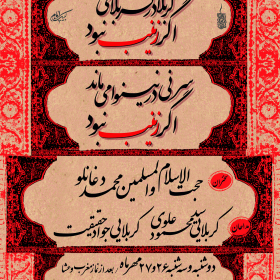 کربلا در کربلا می
اگر زینب نبود
سرّ نی در نینوا می ماند
اگر زینب نبود
سخنران
حجت الاسلام والمسلمین محمد دعانلو
مداحان
کربلایی سید محمود علوی کربلایی جواد حقیقت
دوشنبه و سه شنبه ۲۶ و ۲۷ مهرماه بعد از نماز مغرب و عشا